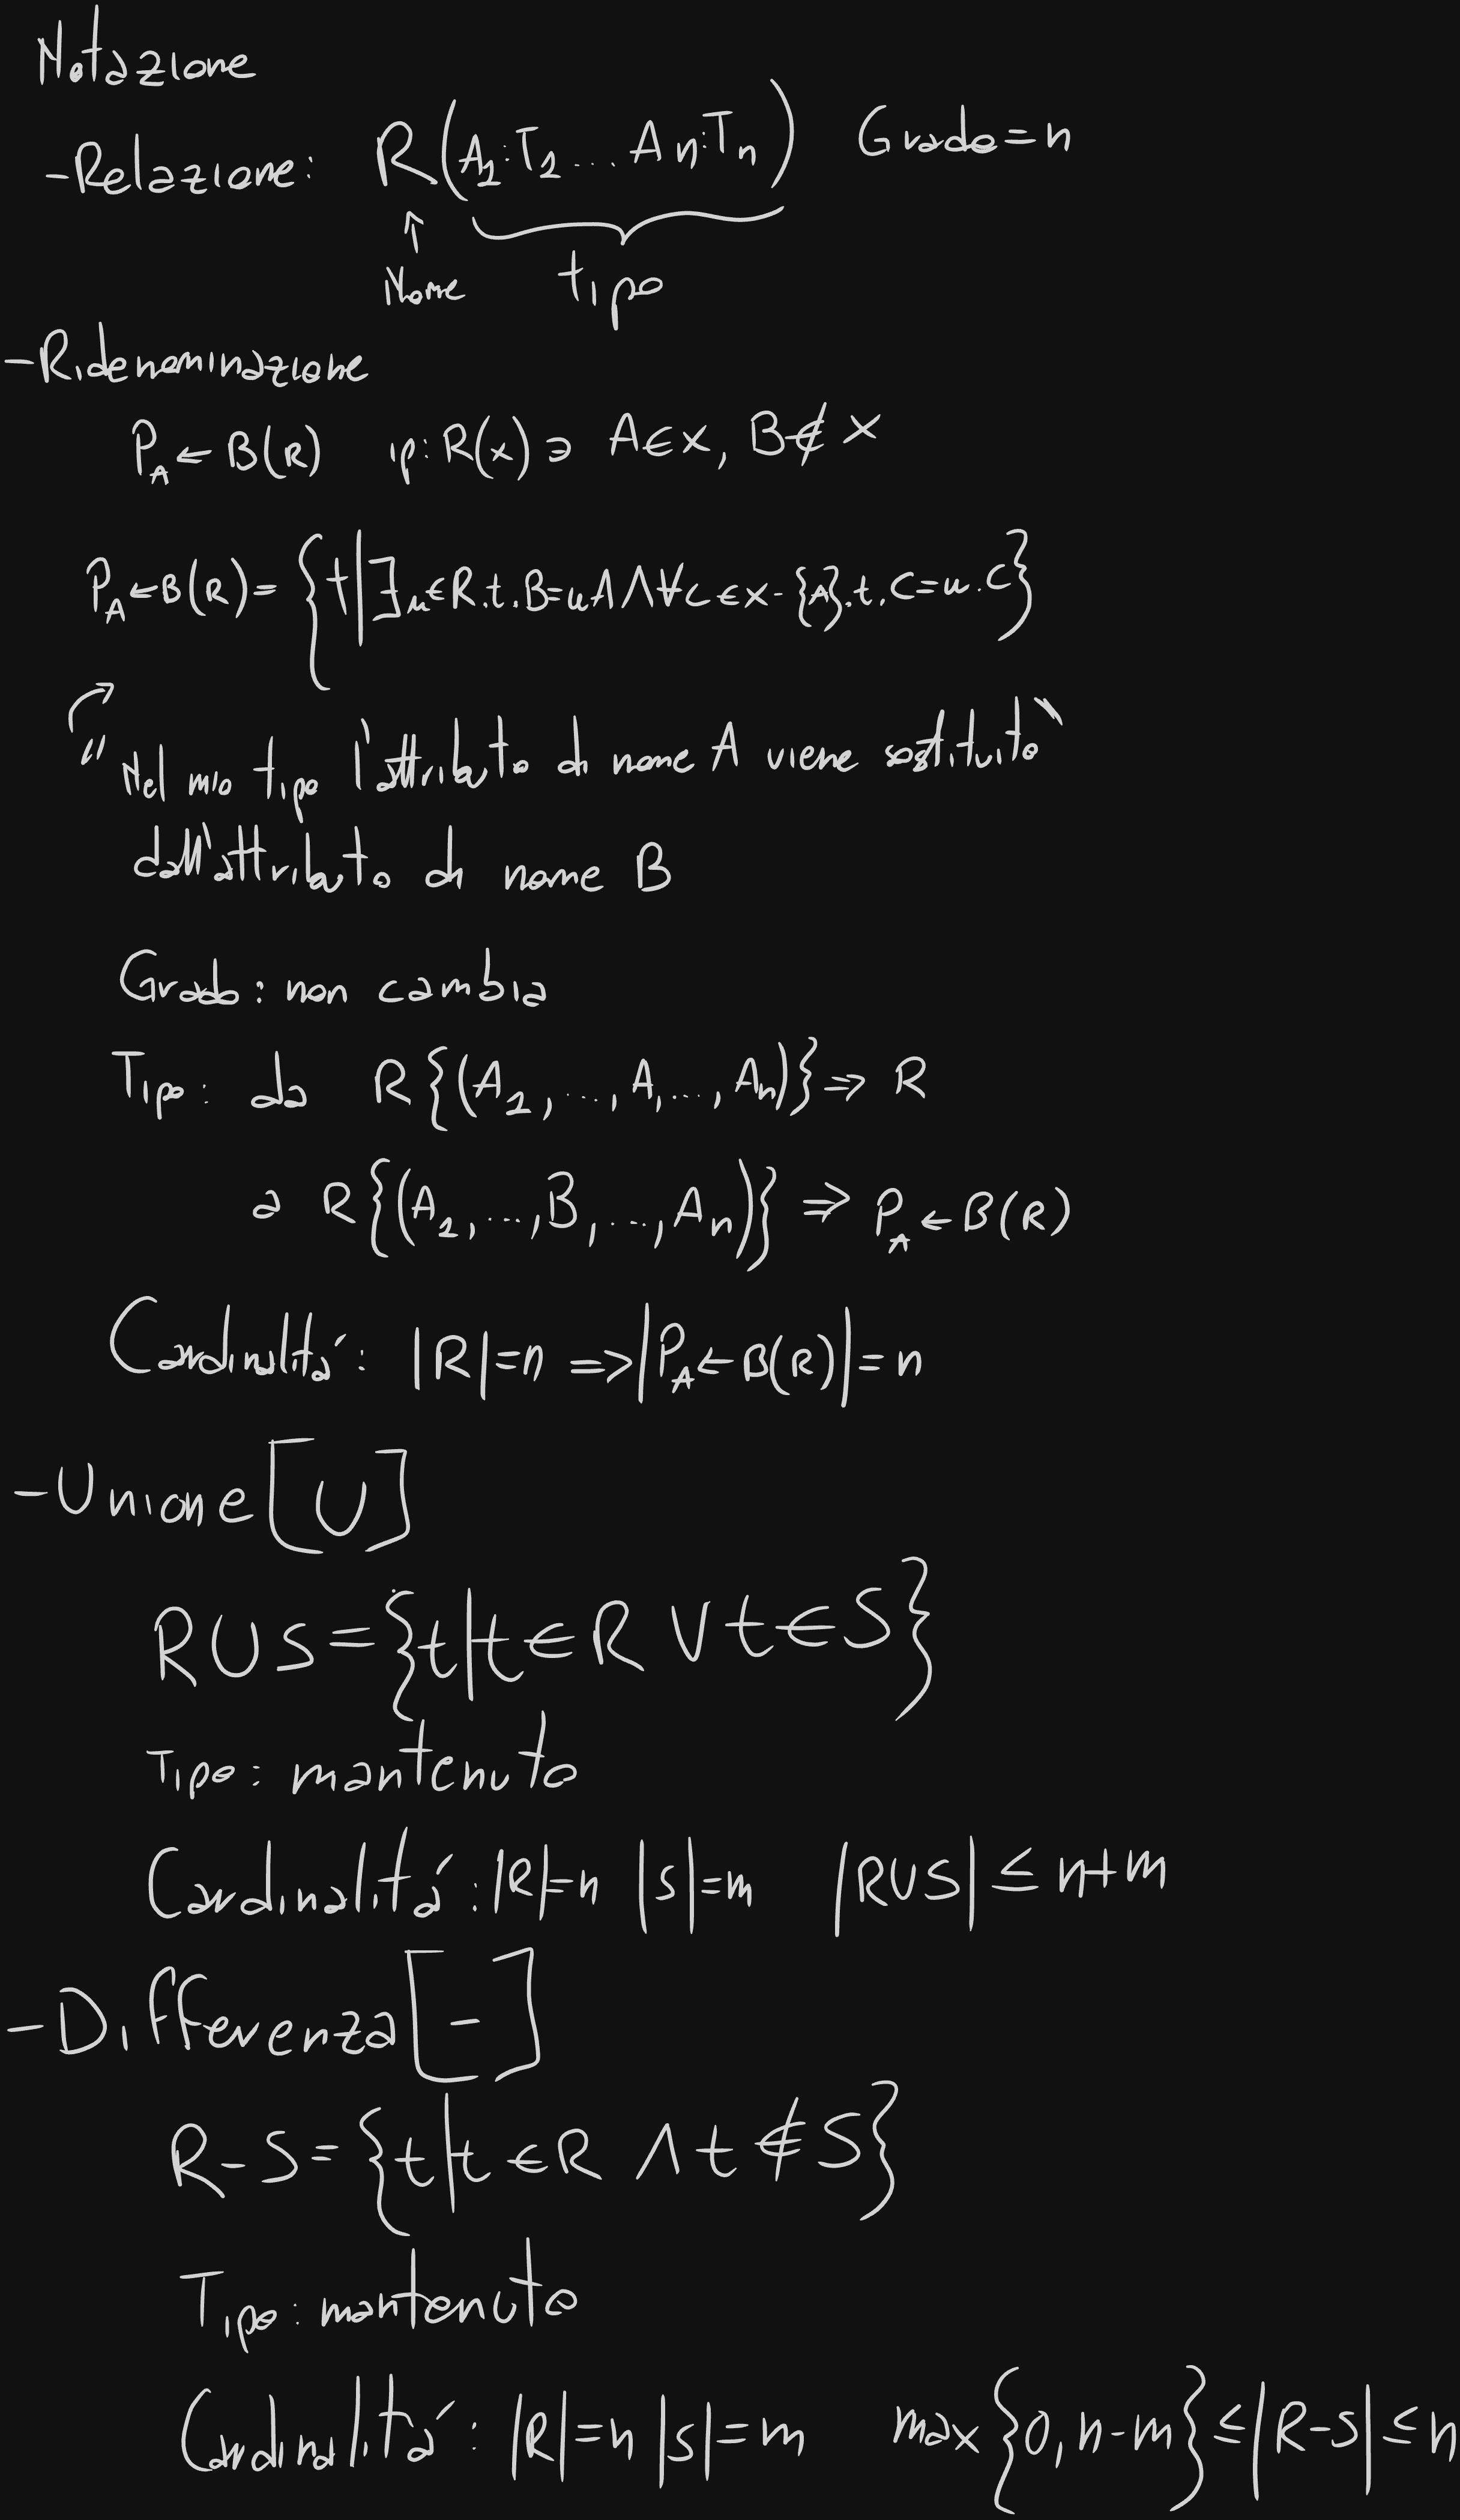 Notazione
-Relazione: R(A₁:T₁...An:Tn) Grado=n
↑
Nome tipo
-Ridenominazione
ρA←B(R) ρ:R(x) ∋ A∈x, B∉x
ρA←B(R)={t|∃u∈R.t.B=u.A∧∀C∈x-{A}.t.C=u.C}
"Nel mio tipo l'attributo di nome A viene sostituito"
dall'attributo di nome B
Grado: non cambia
Tipo: da R{(A₁,...,A,...,An)} ⇒ R
a R{(A₁,...,B,...,An)} ⇒ ρA←B(R)
Cardinalità: |R|=n ⇒|ρA←B(R)|=n
-Unione[∪]
R∪S={t|t∈R ∨ t∈S}
Tipo: mantenuto
Cardinalità: |R|=n |S|=m |R∪S| ≤ n+m
-Differenza[-]
R-S={t|t∈R ∧ t∉S}
Tipo: mantenuto
Cardinalità: |R|=n |S|=m max{0, n-m}≤|R-S|≤n